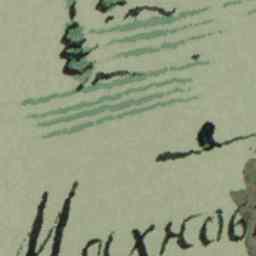 Махнов